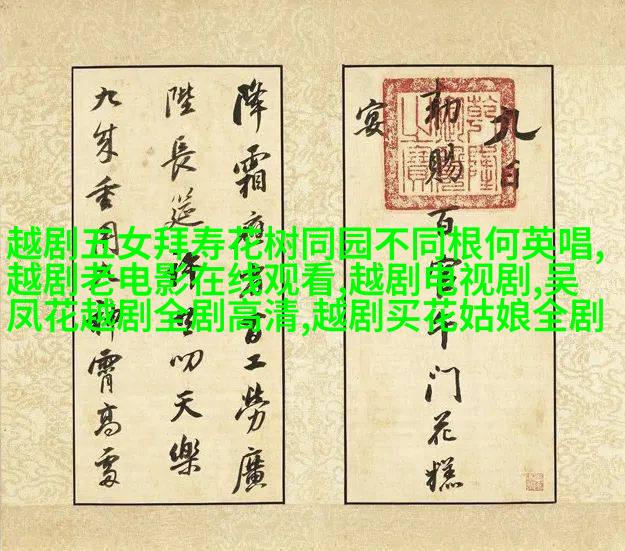 越剧五女拜寿花树同园不同根何英唱,
越剧老电影在线观看,越剧电视剧,吴
凤花越剧全剧高清,越剧买花姑娘全剧
九日
勅賜百官午門花糕
宴
降霜百工勞廣
陛長筵叨天樂
九重霄高